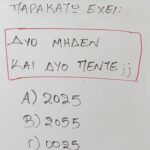 ΠΑΡΑΚΑΤΩ ΕΧΕΙ:
ΔΥΟ ΜΗΔΕΝ
ΚΑΙ ΔΥΟ ΠΕΝΤΕ;;
Α) 2025
Β) 2055
Γ) 0025